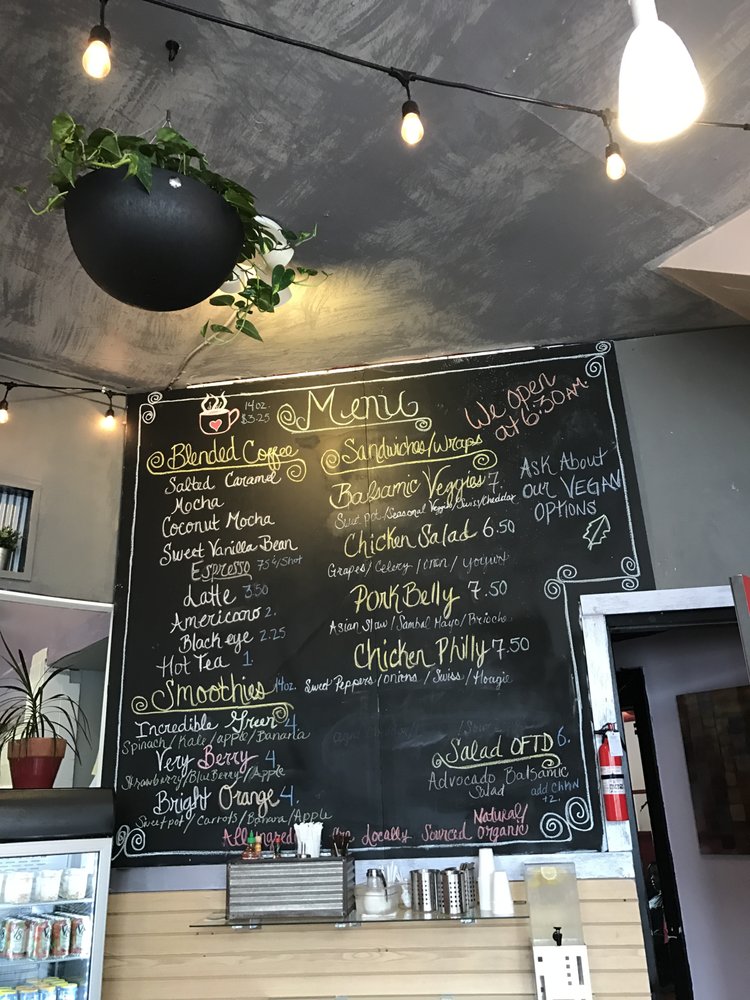 14 oz.
$3.25
Menu
We open
at 6:30 AM.
Blended Coffee
Salted Caramel
Mocha
Coconut Mocha
Sweet Vanilla Bean
Espresso 75¢/Shot
Latte 3.50
Americano 2.
Black eye 2.25
Hot Tea 1.
Smoothies 14oz.
Incredible Green 4
Spinach/Kale/Apple/Banana
Very Berry 4
Strawberry/BlueBerry/Apple
Bright Orange 4
Sweet pot/Carrots/Banana/Apple
Sandwiches/Wraps
Balsamic Veggies 7.
Sweet pot/Seasonal Veggies/Swiss/Cheddar
Chicken Salad 6.50
Grapes/Celery/Cran/
Pork Belly 7.50
Asian Slaw/Sambal Mayo/Brioche
Chicken Philly 7.50
Sweet Peppers/Onions/Swiss/Hoagie
Ask About
our VEGAN
OPTIONS
Salad OFTD 6.
Advocado Balsamic
Salad
add Chkn
+2.
All Locally Sourced Natural/
Organic